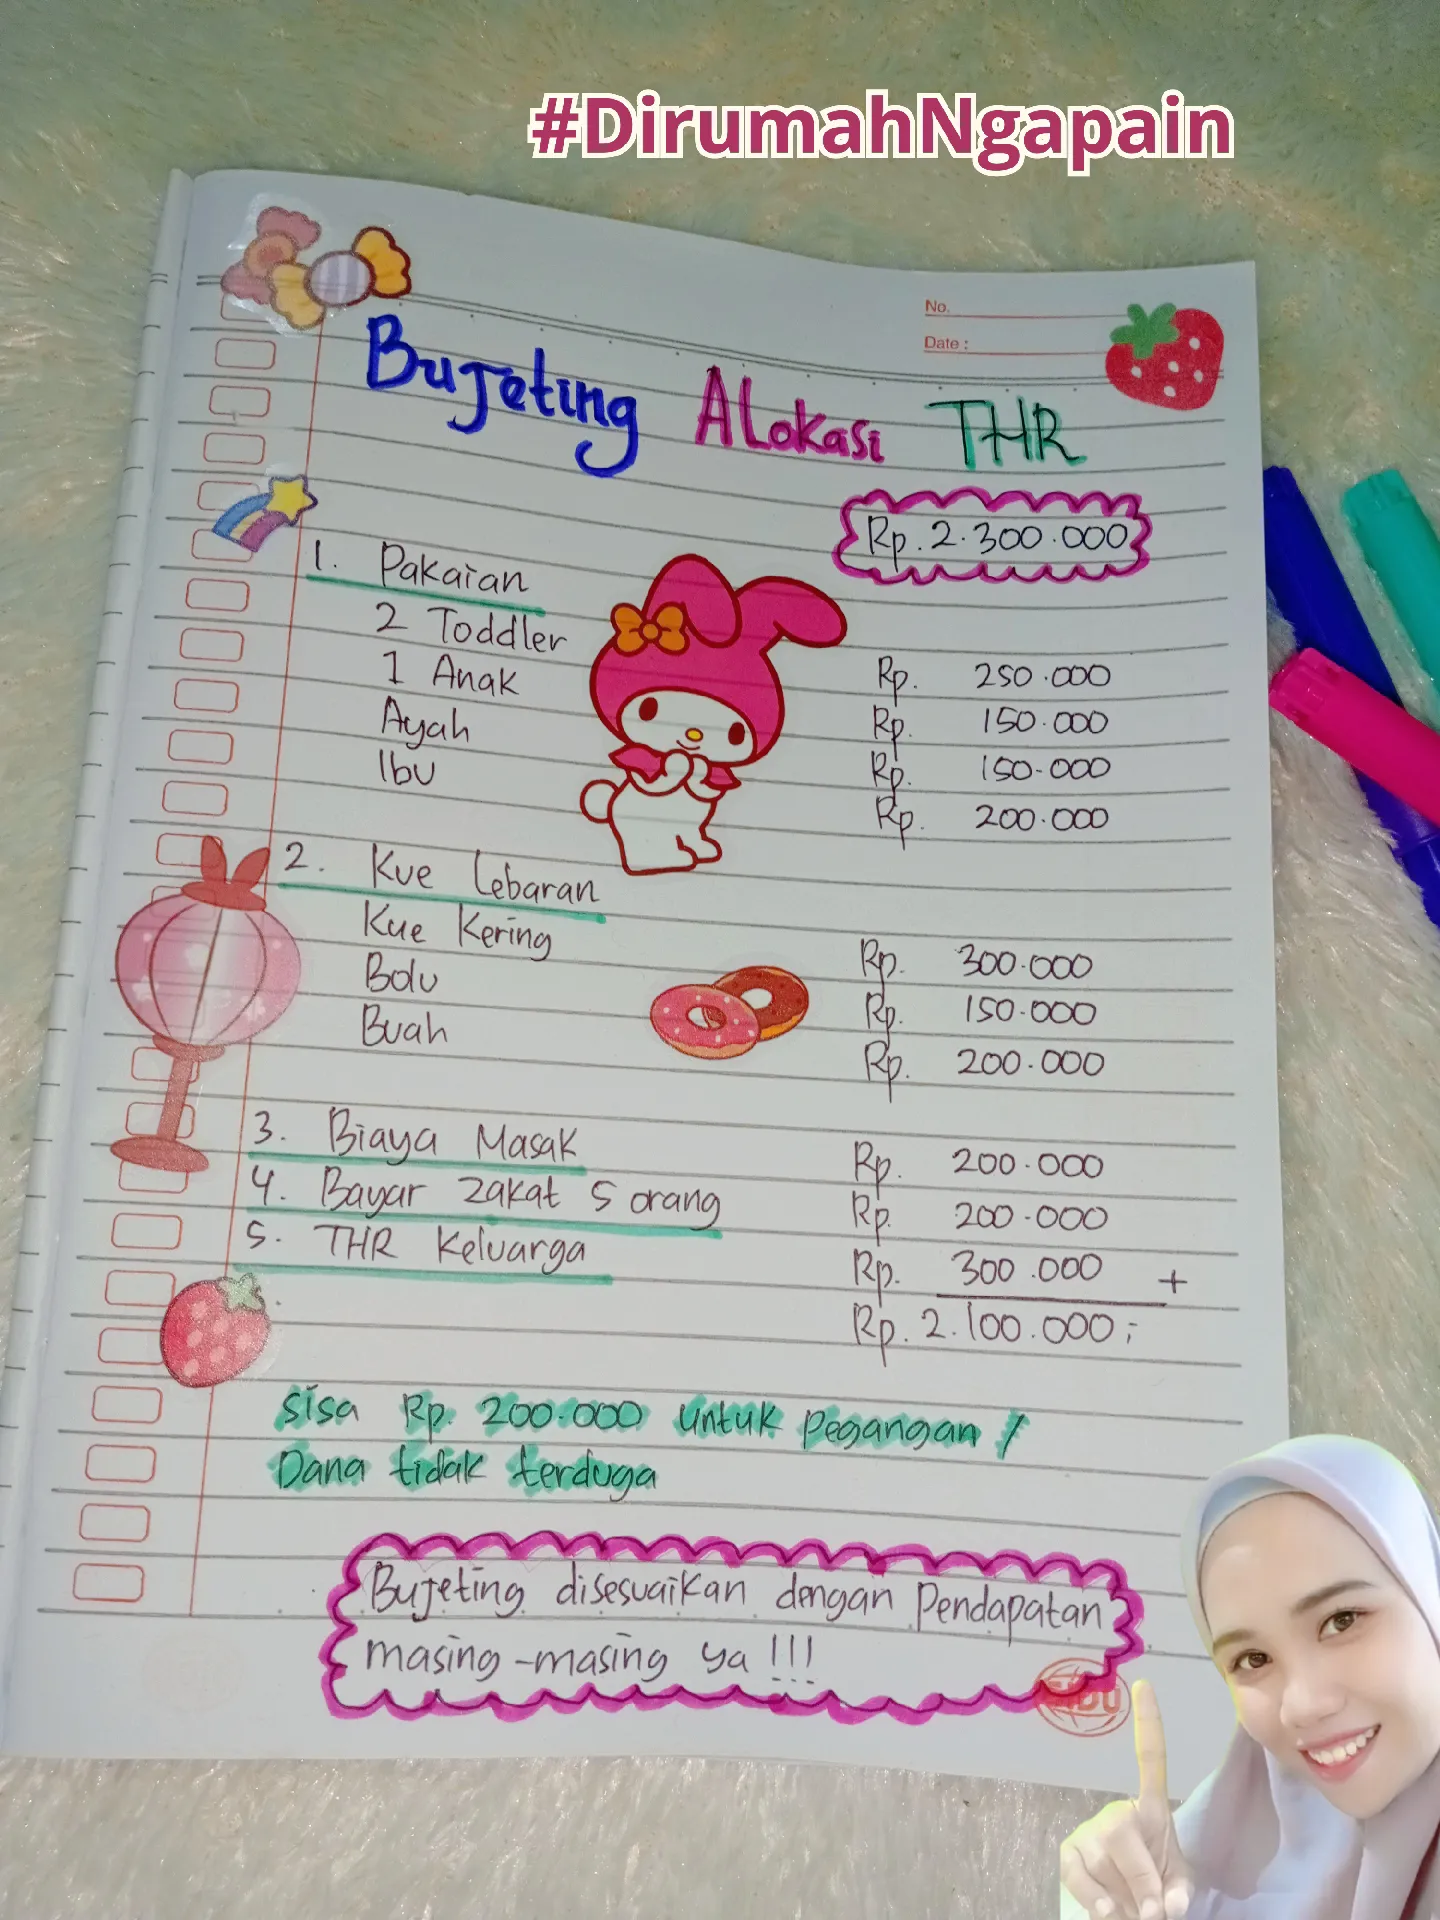 #DirumahNgapain
No.
Date :
Bujeting Alokasi THR
Rp. 2.300.000
1. Pakaian
2 Toddler Rp. 250.000
1 Anak Rp. 150.000
Ayah Rp. 150.000
Ibu Rp. 200.000
2. Kue Lebaran
Kue Kering Rp. 300.000
Bolu Rp. 150.000
Buah Rp. 200.000
3. Biaya Masak Rp. 200.000
4. Bayar Zakat 5 orang Rp. 200.000
5. THR Keluarga Rp. 300.000 +
Rp. 2.100.000,-
Sisa Rp. 200.000 untuk pegangan /
Dana tidak terduga
Bujeting disesuaikan dengan Pendapatan
masing-masing ya !!!